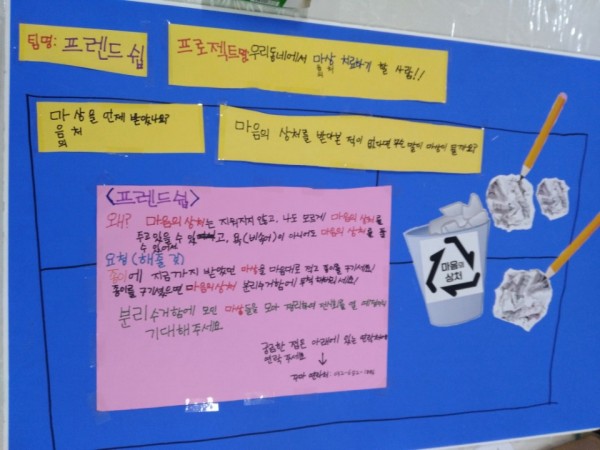 팀명: 프렌드 쉽
프로젝트명 우리동네에서 마상 치료하기 할 사람!!
음처
의
마상을 언제 받았나요?
음처
의
마음의 상처를 받다본 적이 있다면 무슨 말이
<프렌드쉽>
왜? 마음의 상처는 지워지지 않고, 나도 모르게 마음의 상처를
주고 있을 수 있고, 욕(비속어)이 아니어도 마음의 상처를 줄
수 있어서
요청(해줄 것)
종이에 지금까지 받았던 마상을 마음대로 적고 종이를 구기세요!
종이를 구기셨으면 마음의상처 분리수거함에 투척 해주세요!
분리수거함에 모인 마상들을 모아 정리하여 전시회를 열 예정이니
기대해주세요.
궁금한 점은 아래에 있는 연락처에
연락 주세요
마음의
상처